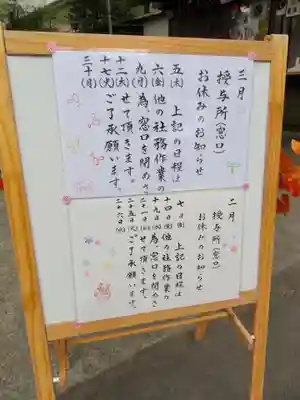 三月
授与所(窓口)
お休みのお知らせ
五(木) 上記の日程は
六(金)他の社務作業の
九(月)為、窓口を閉めさ
十二(木)せて頂きます。
十七(火)ご了承願います。
三十(月)
二月
授与所(窓口)
お休みのお知らせ
七日 上記の日程は
十四日他の社務作業の
十九日為、窓口を閉めさ
二十一日せて頂きます。
二十五日ご了承願います。
二十六日